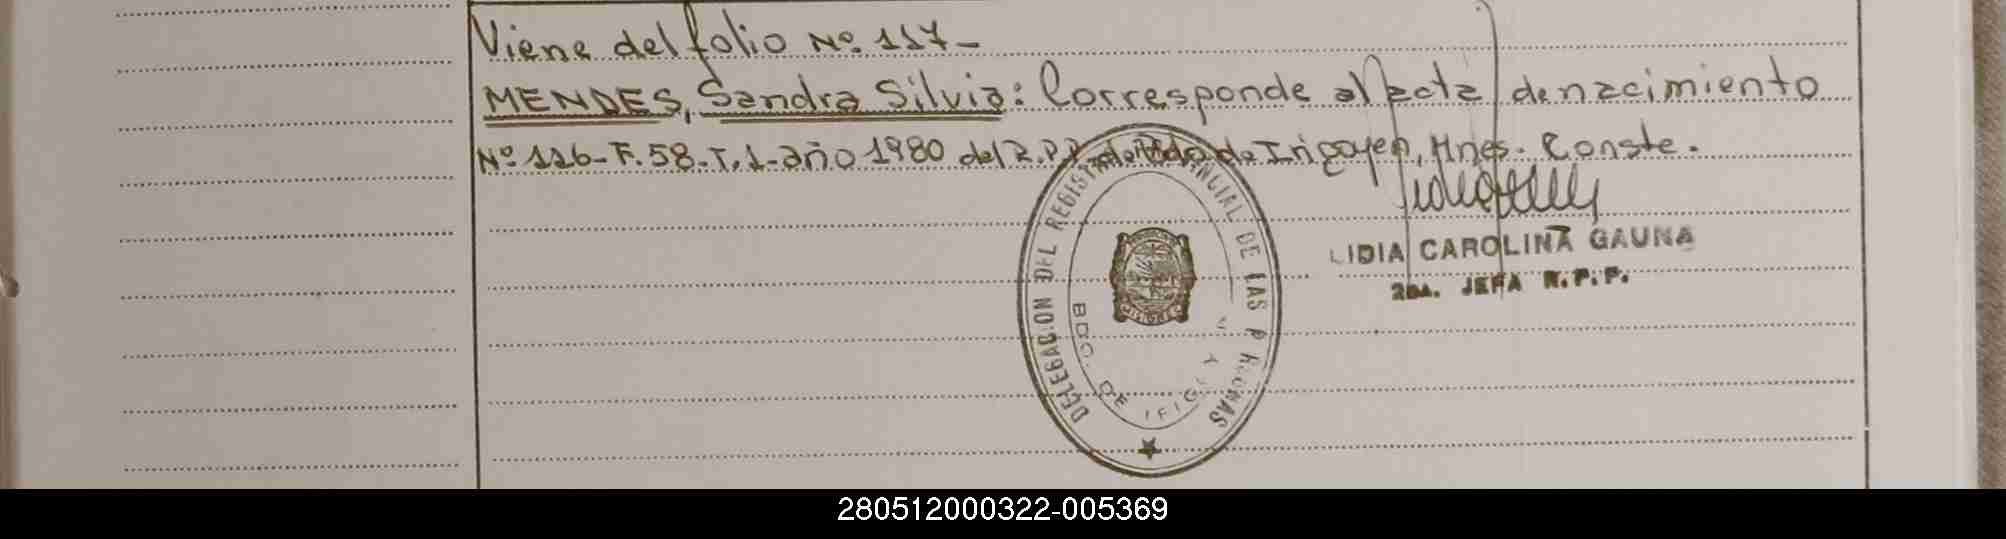 Viene del folio Nº 117-
MENDES, Sandra Silvia: Corresponde al acta de nacimiento
Nº 116- F. 58- T. 1- año 1980 del R.P.P. de Bdo de Irigoyen, Mnes. Conste.
LIDIA CAROLINA GAUNA
2da. JEFA R.P.P.
DELEGACION DEL REGISTRO PROVINCIAL DE LAS PERSONAS
MISIONES
BDO. DE IRIGOYEN
280512000322-005369